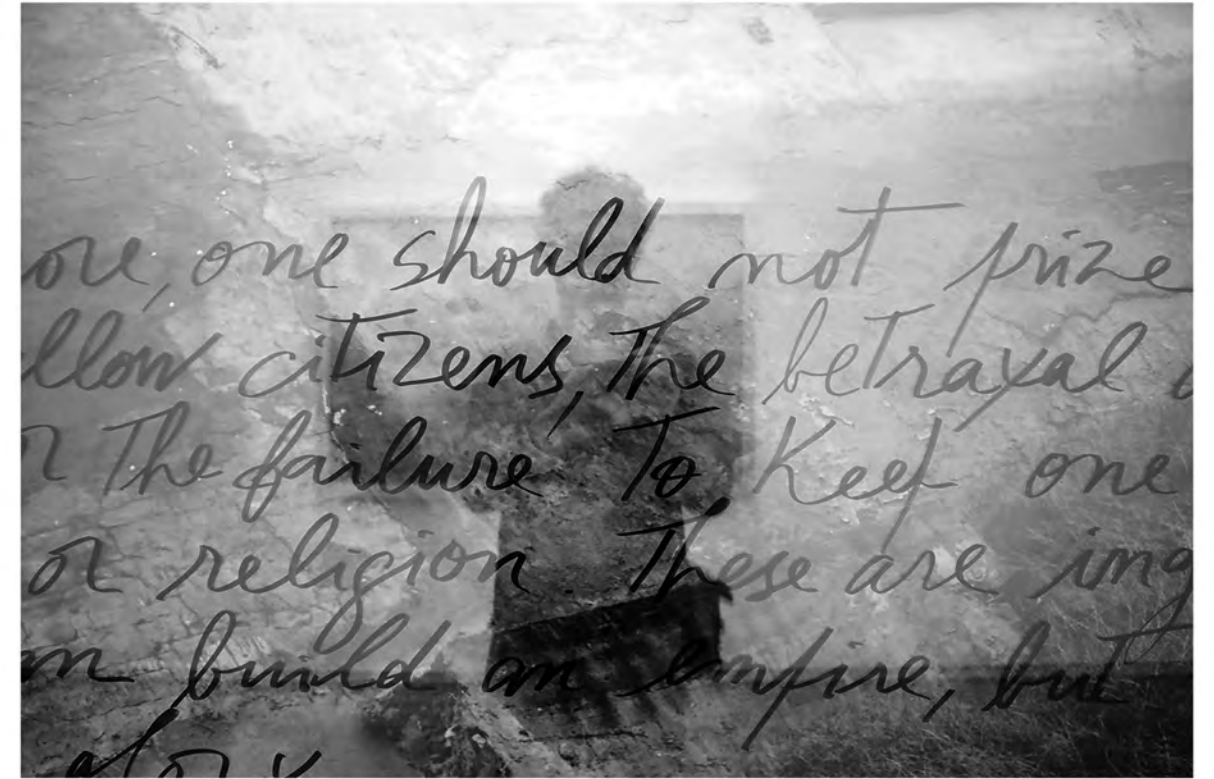 ore, one should not prize
llow citizens, The betrayal
The failure To Keep one
or religion These are ing
an build an empire, but
glory